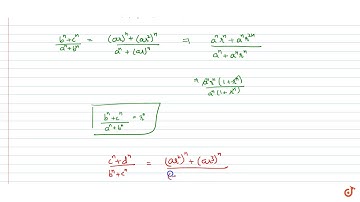 (bⁿ+cⁿ)/(aⁿ+bⁿ) = ((ar)ⁿ + (ar²)ⁿ)/(aⁿ + (ar)ⁿ) ⇒ (aⁿrⁿ + aⁿr²ⁿ)/(aⁿ + aⁿrⁿ)
⇒ aⁿrⁿ(1+rⁿ)/aⁿ(1+rⁿ)
(bⁿ+cⁿ)/(aⁿ+bⁿ) = rⁿ
(cⁿ+dⁿ)/(bⁿ+cⁿ) = ((ar²)ⁿ + (ar³)ⁿ)/(a